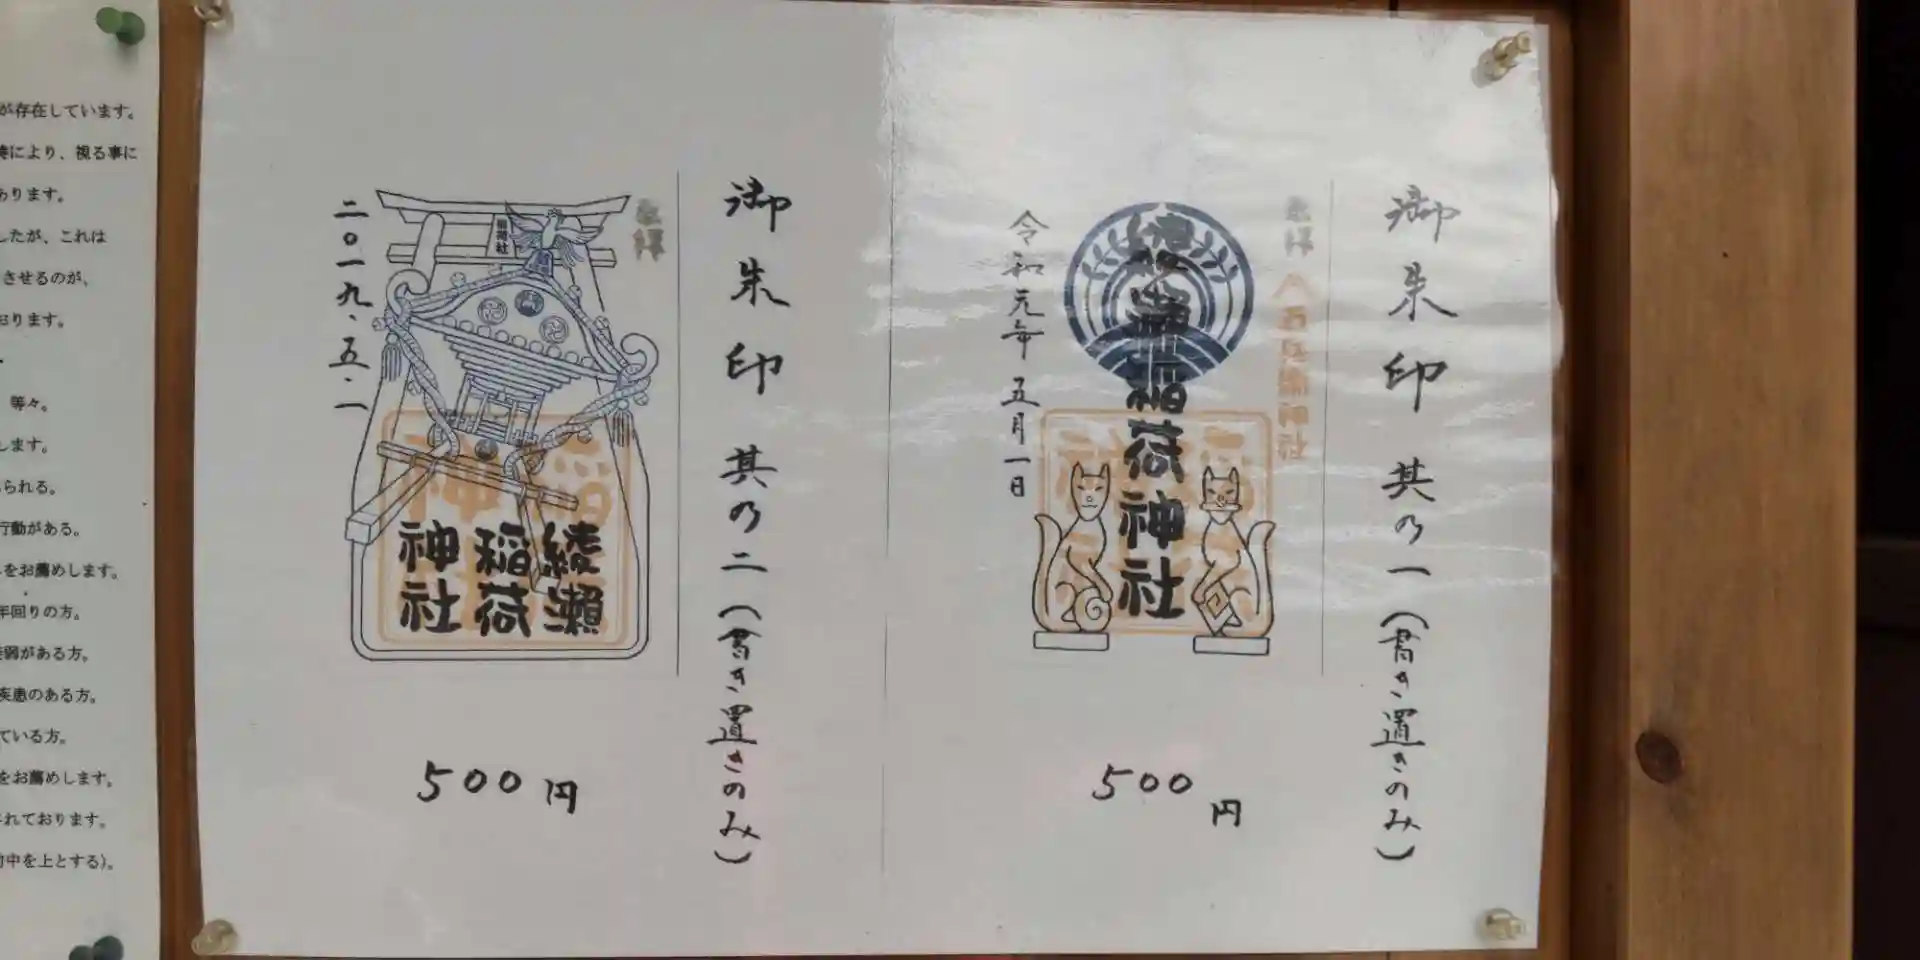 御朱印 其の一(書き置きのみ)
奉拝
綾瀬稲荷神社
令和元年五月一日
500円
御朱印 其の二(書き置きのみ)
奉拝
稲荷社
綾瀬
稲荷
神社
二〇一九.五.一
500円
が存在しています。
により、視る事に
あります。
したが、これは
させるのが、
おります。
等々。
します。
られる。
行動がある。
をお薦めします。
年回りの方。
がある方。
疾患のある方。
ている方。
をお薦めします。
れております。
中を上とする)。